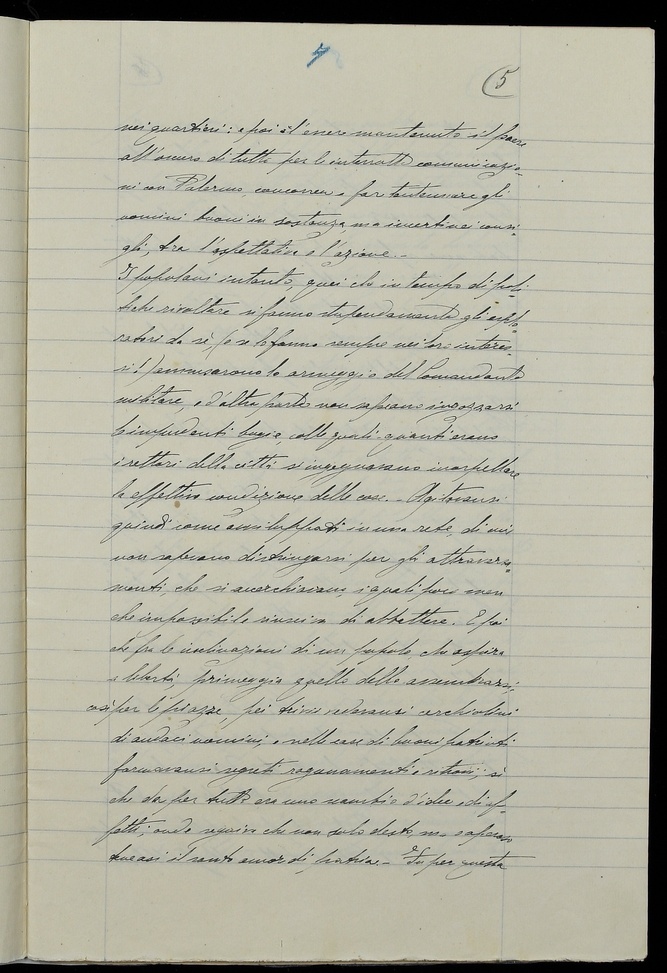 4
5
nei quartieri: e poi è l'essere mantenuto il paese
all'oscuro di tutto per le interrotte comunicazio-
ni con Palermo, concorreva a far tentennare gli
uomini buoni in sostanza, ma incerti nei consi-
gli, tra l'aspettativa e l'azione. -
I popolani intanto, quei che in tempo di poli-
tiche rivolture si fanno stupendamente gli esplo-
ratori da sè (o se la fanno sempre nei loro interes-
si!) annusarono lo armeggio del Comandante
militare, e d'altra parte non sapeano ingozzarsi
le impudenti bugie, colle quali quanti erano
i rettori della città si ingegnavano inorpellare
la effettiva condizione delle cose. - Agitavansi
quindi come avviluppati in una rete, di cui
non sapeano districarsi per gli attraversa-
menti, che si accerchiavano, i quali poco men
che impossibile riusciva di abbattere. E poi
chè fra le inclinazioni di un popolo che aspira
a libertà primeggia quella dello assembrarsi,
così per le piazze, pei trivi vedeansi cerchiolini
di audaci uomini, e nelle case di buoni patrioti
formavansi segreti ragunamenti e ritrovi; sì
che da per tutto era uno scambio d'idee e di af-
fetti; onde seguiva che non solo desto, ma operoso
teneasi il santo amor di patria. - Fu per questa